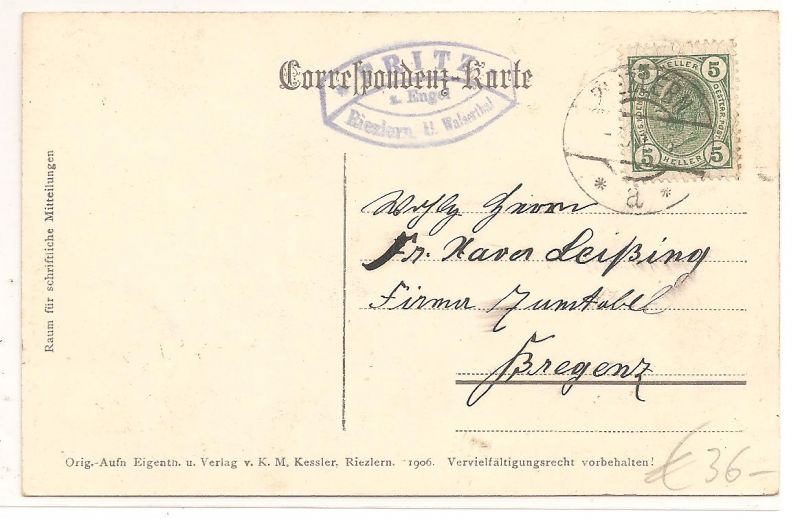 Correspondenz-Karte
FRITZ
z. Engel
Riezlern, b. Walserthal
5 HELLER 5
5 HELLER 5
RIEZLERN
* a *
Raum für schriftliche Mitteilungen
Wohlg Herrn
Fr. Xaver Leißing
Firma Zumtobel
Bregenz
Orig.-Aufn Eigentn. u. Verlag v. K. M. Kessler, Riezlern. 1906. Vervielfältigungsrecht vorbehalten!
€ 36-